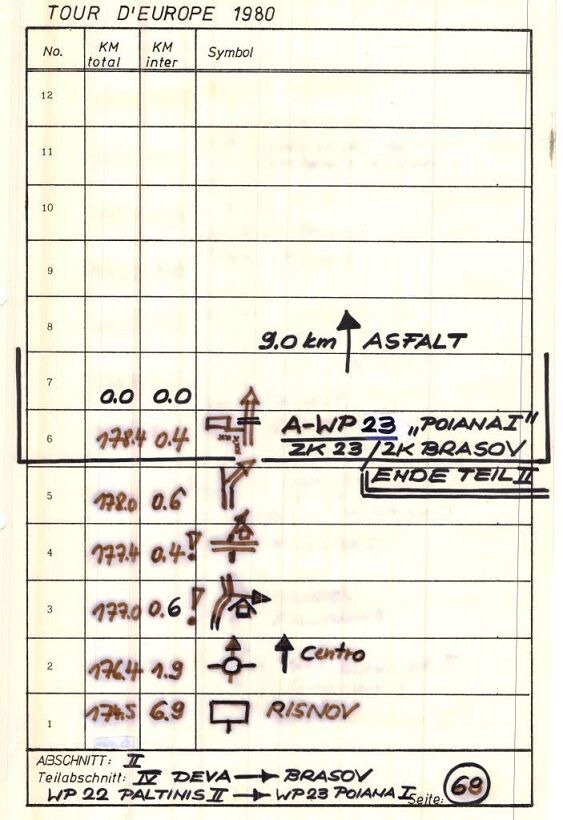 TOUR D'EUROPE 1980
No. KM total KM inter Symbol
12
11
10
9
8 9.0 km ASFALT
7 0.0 0.0
6 178.4 0.4 A-WP 23 „POIANA I"
ZK 23 / ZK BRASOV
ENDE TEIL II
5 178.0 0.6
4 177.4 0.4 !
3 177.0 0.6 !
2 176.4 1.9 Centro
1 174.5 6.9 RISNOV
ABSCHNITT: II
Teilabschnitt: IV DEVA → BRASOV
WP 22 PALTINIS II → WP 23 POIANA I Seite: 69